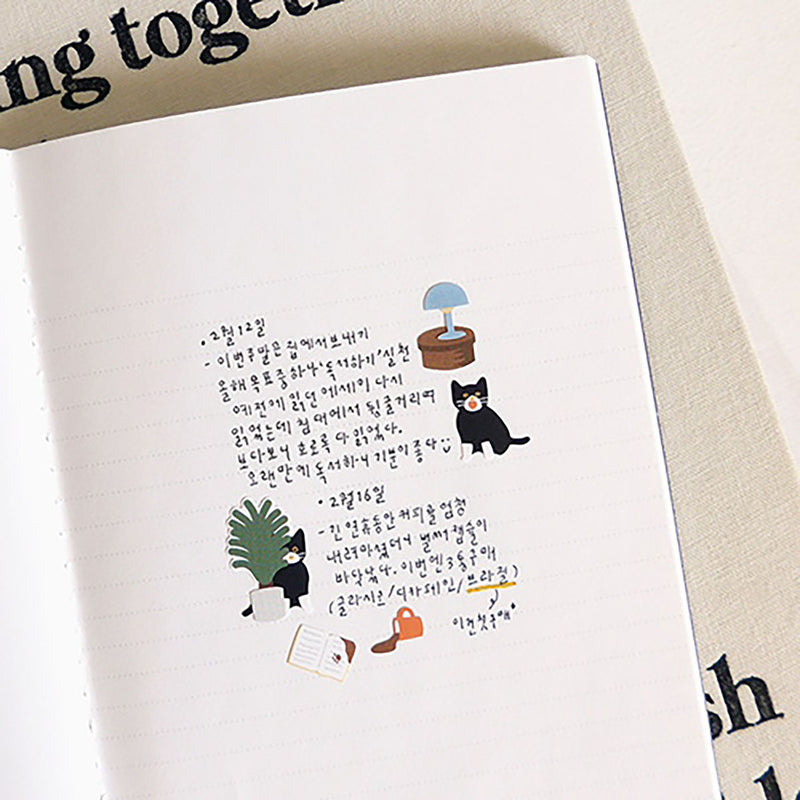 ng together
• 2월 12일
- 이번주말은 집에서 보내기
올해 목표 중 하나 '독서하기' 실천
예전에 읽던 에세이 다시
읽었는데 침대에서 뒹굴거리며
보다보니 호로록 다 읽었다.
오랜만에 독서하니 기분이 좋다
• 2월 16일
- 긴 연휴동안 커피를 엄청
내려마셨더니 벌써 캡슐이
바닥났다. 이번엔 3통구매
(콜라시오/디카페인/브라질)
이건첫구매*
sh